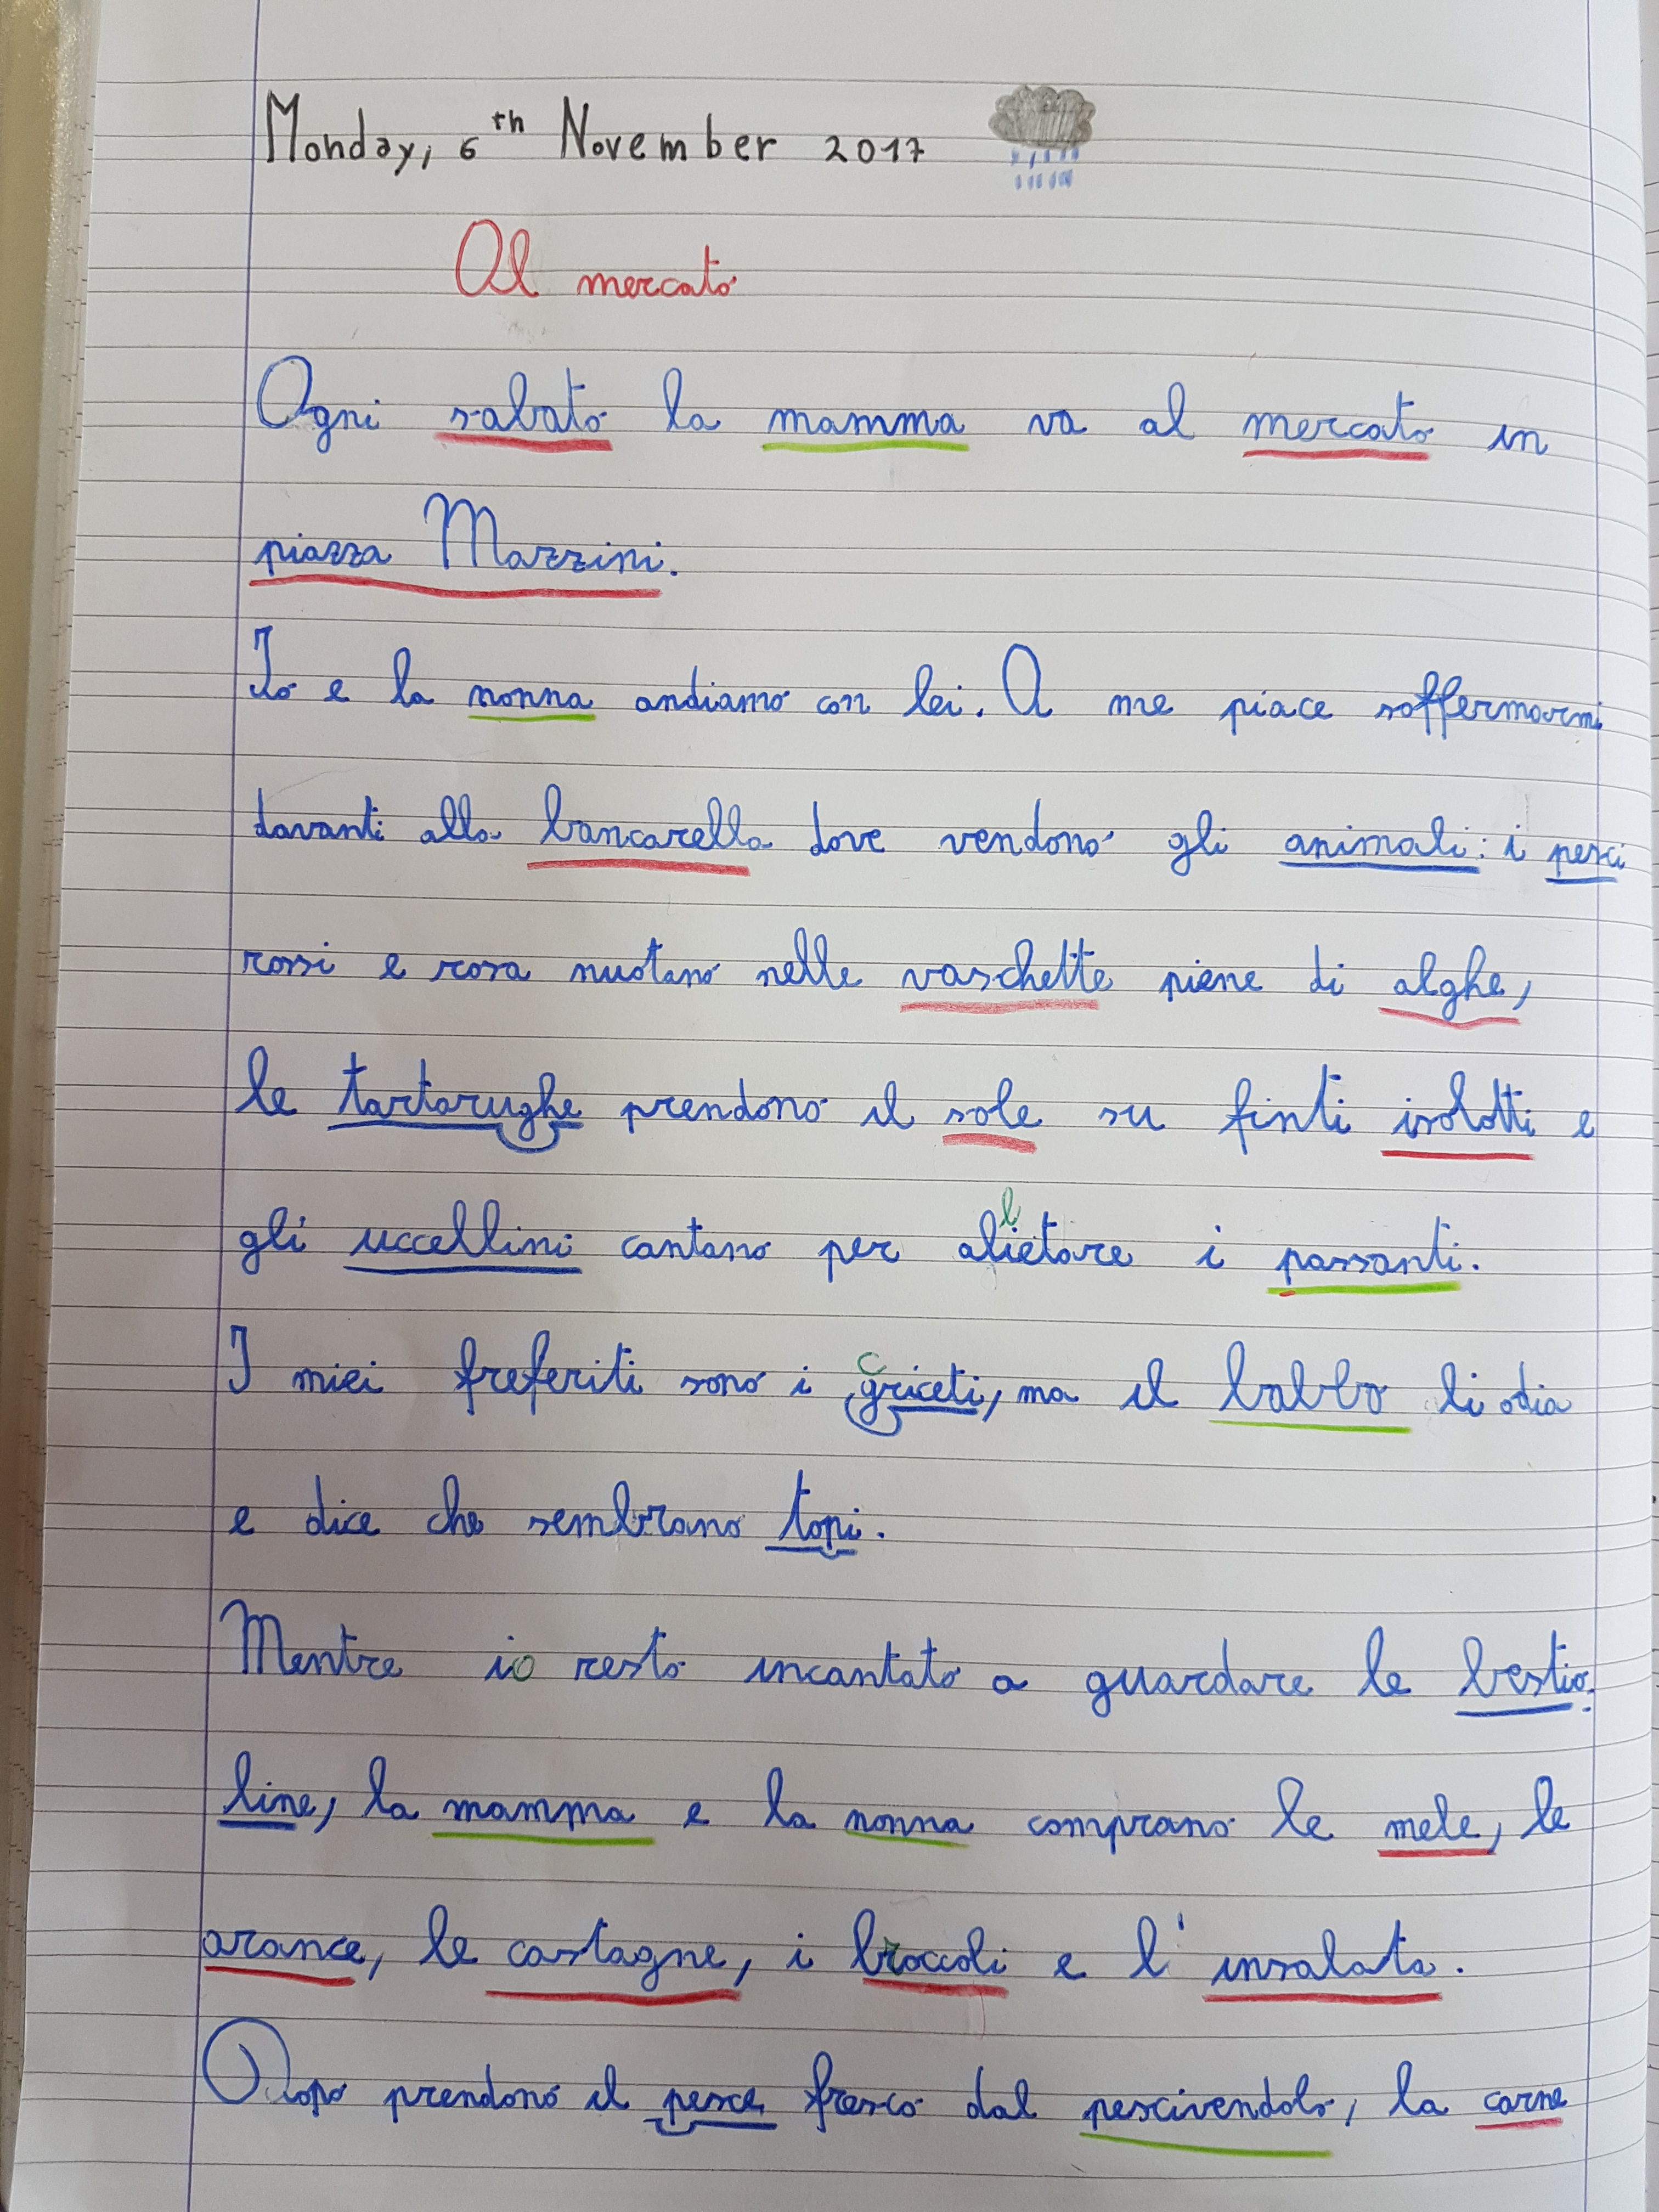 Monday, 6th November 2017
Al mercato
Ogni sabato la mamma va al mercato in
piazza Mazzini.
Io e la nonna andiamo con lei. A me piace soffermarmi
davanti alla bancarella dove vendono gli animali: i pesci
rossi e rosa nuotano nelle vaschette piene di alghe,
le tartarughe prendono il sole su finti isolotti e
l
gli uccellini cantano per alietare i passanti.
c
I miei freferiti sono i griceti, ma il babbo li odia
e dice che sembrano topi.
Mentre io resto incantato a guardare le bestio-
line, la mamma e la nonna comprano le mele, le
arance, le castagne, i broccoli e l'insalata.
Dopo prendono il pesce fresco dal pescivendolo, la carne